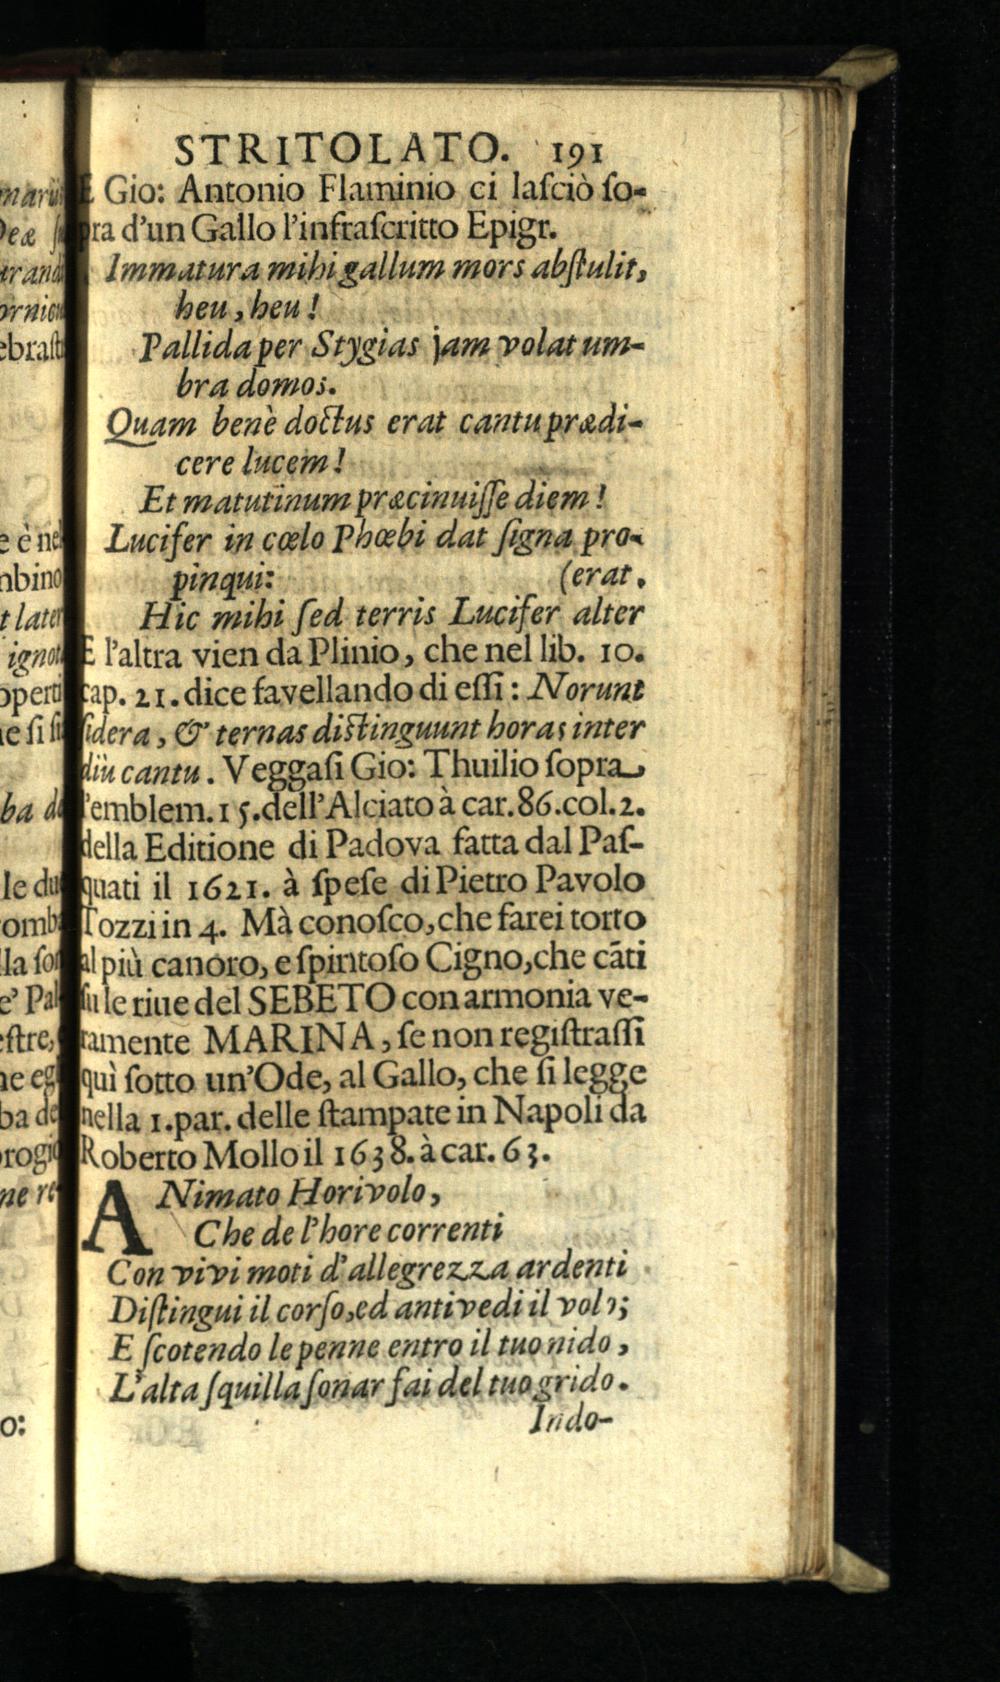 STRITOLATO. 191
E Gio: Antonio Flaminio ci laſciò ſo-
pra d'un Gallo l'infraſcritto Epigr.
Immatura mihi gallum mors abſtulit,
heu, heu!
Pallida per Stygias jam volat um-
bra domos.
Quam benè doctus erat cantu prædi-
cere lucem!
Et matutinum præcinuiſſe diem!
Lucifer in cœlo Phœbi dat ſigna pro-
pinqui: (erat.
Hic mihi ſed terris Lucifer alter
E l'altra vien da Plinio, che nel lib. 10.
cap. 21. dice favellando di eſſi: Norunt
ſidera, & ternas diſtinguunt horas inter
diù cantu. Veggaſi Gio: Thuilio ſopra
l'emblem. 15. dell'Alciato à car. 86. col. 2.
della Editione di Padova fatta dal Paſ-
quati il 1621. à ſpeſe di Pietro Pavolo
Tozzi in 4. Mà conoſco, che farei torto
al più canoro, e ſpiritoſo Cigno, che cāti
ſu le riue del SEBETO con armonia ve-
ramente MARINA, ſe non regiſtraſſi
quì ſotto un'Ode, al Gallo, che ſi legge
nella 1. par. delle ſtampate in Napoli da
Roberto Mollo il 1638. à car. 63.
ANimato Horivolo,
Che de l'hore correnti
Con vivi moti d'allegrezza ardenti
Diſtingui il corſo, ed antivedi il volo;
E ſcotendo le penne entro il tuo nido,
L'alta ſquilla ſonar fai del tuo grido.
Indo-